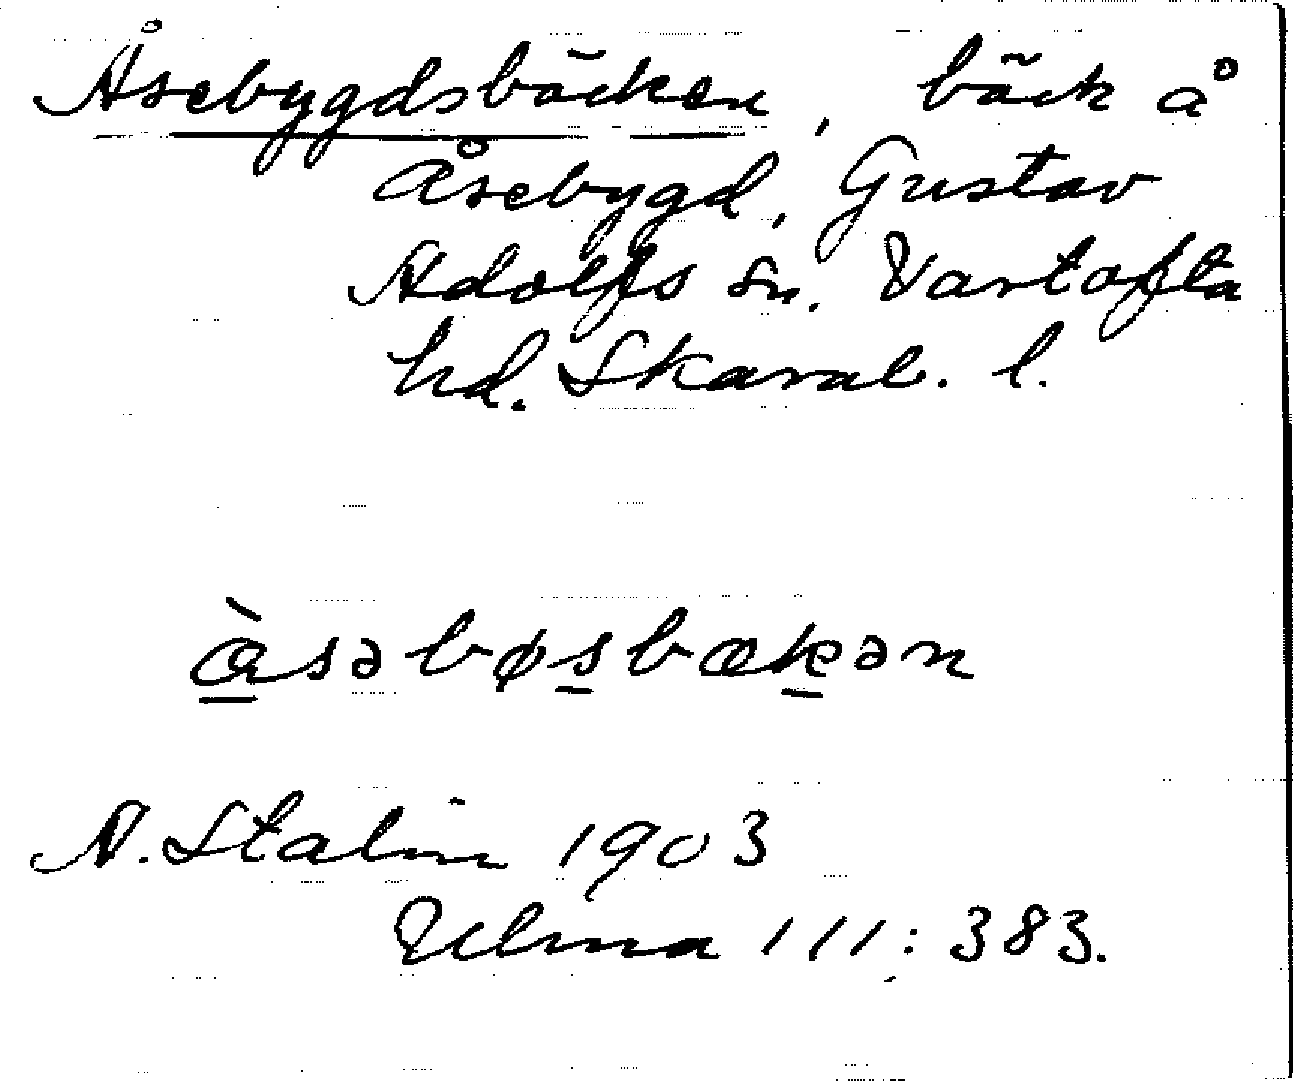 Åsebygdsbäcken, bäck å
Åsebygd, Gustav
Adolfs sn. Vartofta
hd. Skarab. l.
à̱səbøs̱bæḵən
A. Stalin 1903
Ulma 111:383.